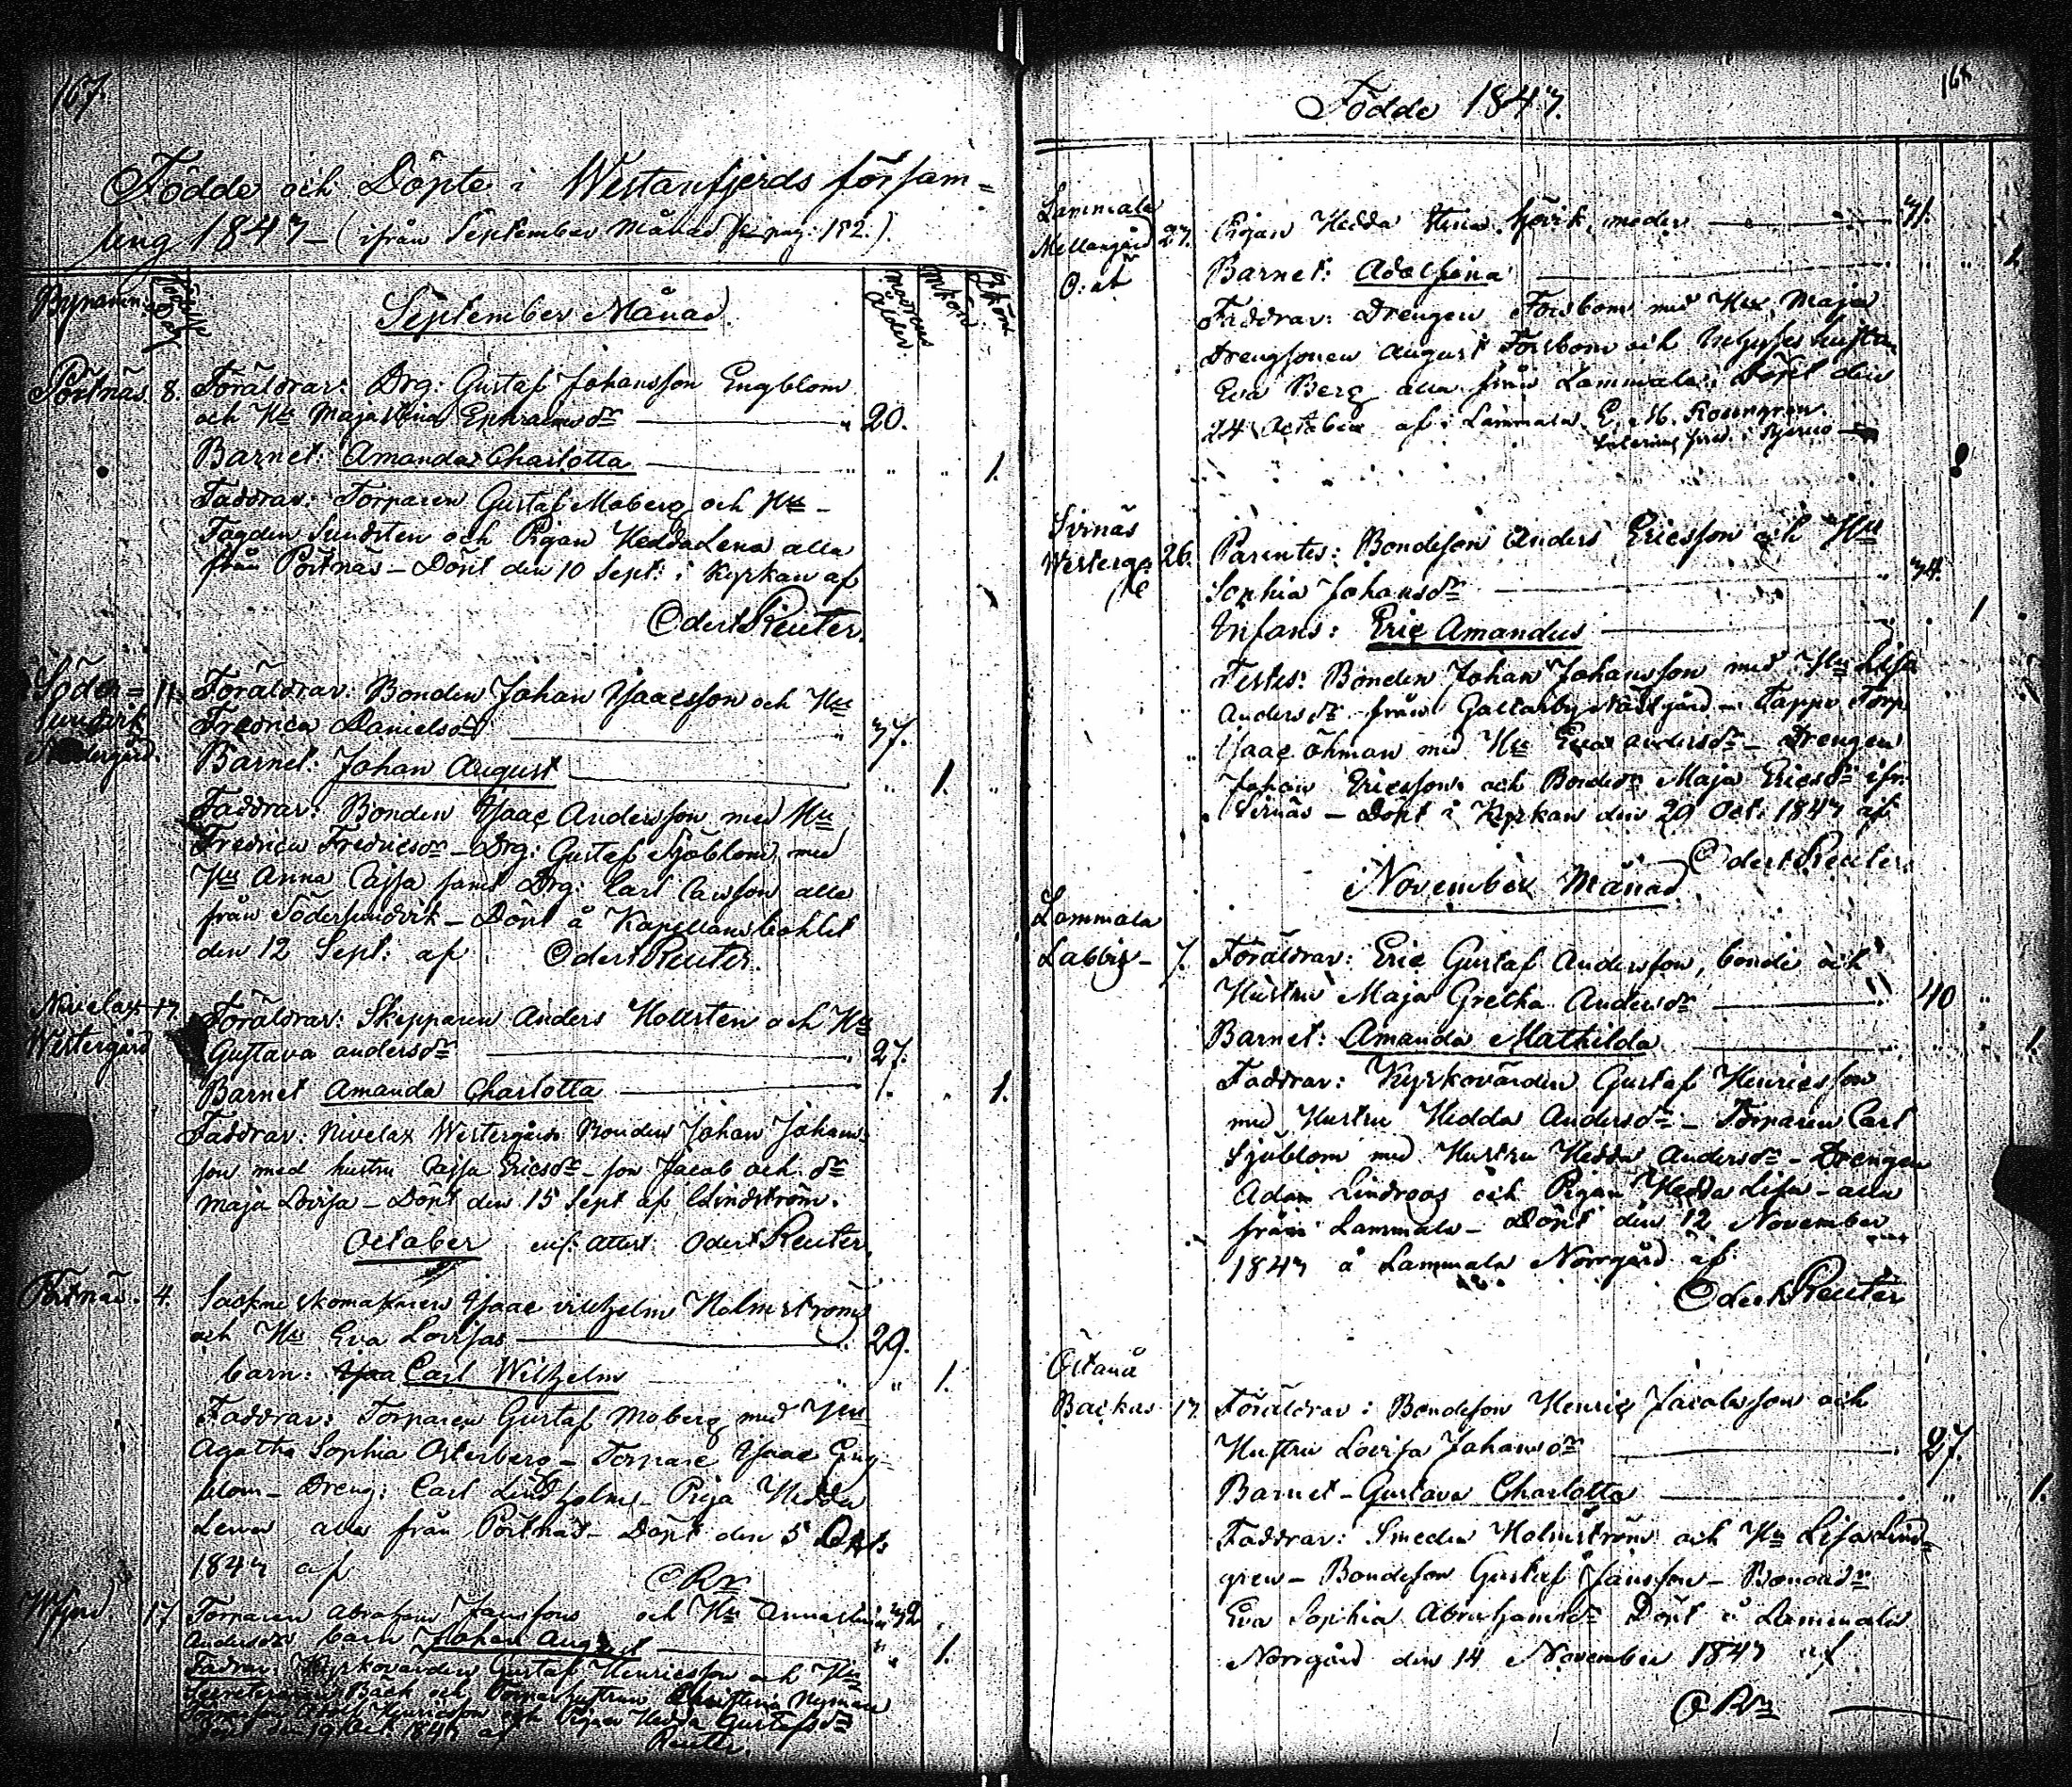 167.
Födde och Döpte i Westanfjerds försam=
ling 1847 – (ifrån September Månad pag: 152.)
Bynamn
Moderns ålder
September Månad.
Pörtnäs. 8. Föräldrar: Drg: Gustaf Johansson Engblom
och Hu Maja Stina Ephraimsdr 20.
Barnet: Amanda Charlotta 1.
Faddrar: Torparen Gustaf Moberg och Hu –
Sundsten och Pigan Hedda Lena alla
från Pörtnäs – Döpt den 10 Sept: i Kyrkan af
Odert Reuter.
Söder= 11. Föräldrar: Bonden Johan Isaacsson och Hu
sundvik Fredrica Danielsdr 37.
Barnet: Johan August 1.
Faddrar: Bonden Isaac Andersson med Hu
Fredrica Fredricsdr – Drg: Gustaf Sjöblom med
Hu Anna Cajsa samt Drg: Carl alla
från Södersundvik – Döpt å Kapellansbohlet
den 12 Sept: af Odert Reuter.
Nivelax 17. Föräldrar: Skepparen Anders Hollsten och Hu
Westergård Gustava Andersdr 27.
Barnet Amanda Charlotta 1.
Faddrar: Nivelax Westergårds Bonden Johan Johans-
son med hustru Cajsa Ericsdr – son Jacob och dr
Maja Lovisa – Döpt den 15 Sept af Lindström.
October Odert Reuter.
Pörtnäs. 4. Isaac Vilhelm Holmströms
och Hu Eva Lovisas 29.
barn: Isaa Carl Wilhelm 1.
Faddrar: Torparen Gustaf Moberg med Hu
Agatha Sophia Österberg – Torpare Isaac Eng-
blom – Dreng: Carl Lindholm – Piga Hedda
Lena alla från Pörtnäs – Döpt den 5 Oct:
1847 af ORr
17 Torparen Abraham Janssons och Hu Anna Stina
Andersdrs barn Johan August 1.
Fadrar: Kyrkovärden Gustaf Henricsson och Hu
Bäck och Torpar hustrun Christina Nyman
och Pigan Hedda Gustafsdr
Döpt den 19 Oct. 1847 af Reuter.
168
Födde 1847.
Lammala
Mellangård 27. Pigan Hedda Stina moder 31.
Barnet: Adolfina 1.
Faddrar: Drengen Forsbom med Hu Maja
Drengsonen August Forsbom och
Eva Berg alla från Lammala. Döpt den
24 October af i Lammala E. M. Rosengren.
Sirnäs
Westerg: 26. Parentes: Bondeson Anders Ericsson och Hu
Sophia Johansdr 34.
Infans: Eric Amandus 1
Testes: Bonden Johan Johansson med Hu Lisa
Andersdr från Galtarby Nästgård – Tappo Torp:
Isaac Öhman med Hu Eva Andersdr – Drengen
Johan Ericsson och Bondedr Maja Ericsdr ifr:
Sirnäs – Döpt i Kyrkan den 29 Oct: 1847 af
Odert Reuter.
November Månad
Lammala
Labbis – 7. Föräldrar: Eric Gustaf Andersson, bonde och
Hustru Maja Gretha Andersdr 40
Barnet: Amanda Mathilda 1.
Faddrar: Kyrkovärden Gustaf Henricsson
med Hustru Hedda Andersdr – Torparen Carl
Sjöblom med Hustru Hedda Andersdr – Drengen
Adam Lindroos och Pigan Hedda Lisa – alla
från Lammala – Döpt den 12 November
1847 å Lammala Norrgård af
Odert Reuter
Östanå
Backas 17. Föräldrar: Bondeson Henric Jacobsson och
Hustru Lovisa Johansdr 27.
Barnet – Gustava Charlotta 1.
Faddrar: Smeden Holmström och Hu Lisa Lind-
gren – Bondeson Gustaf Jansson – Bondedr
Eva Sophia Abrahamsdr Döpt å Lammala
Norrgård den 14 November 1847 af
ORr